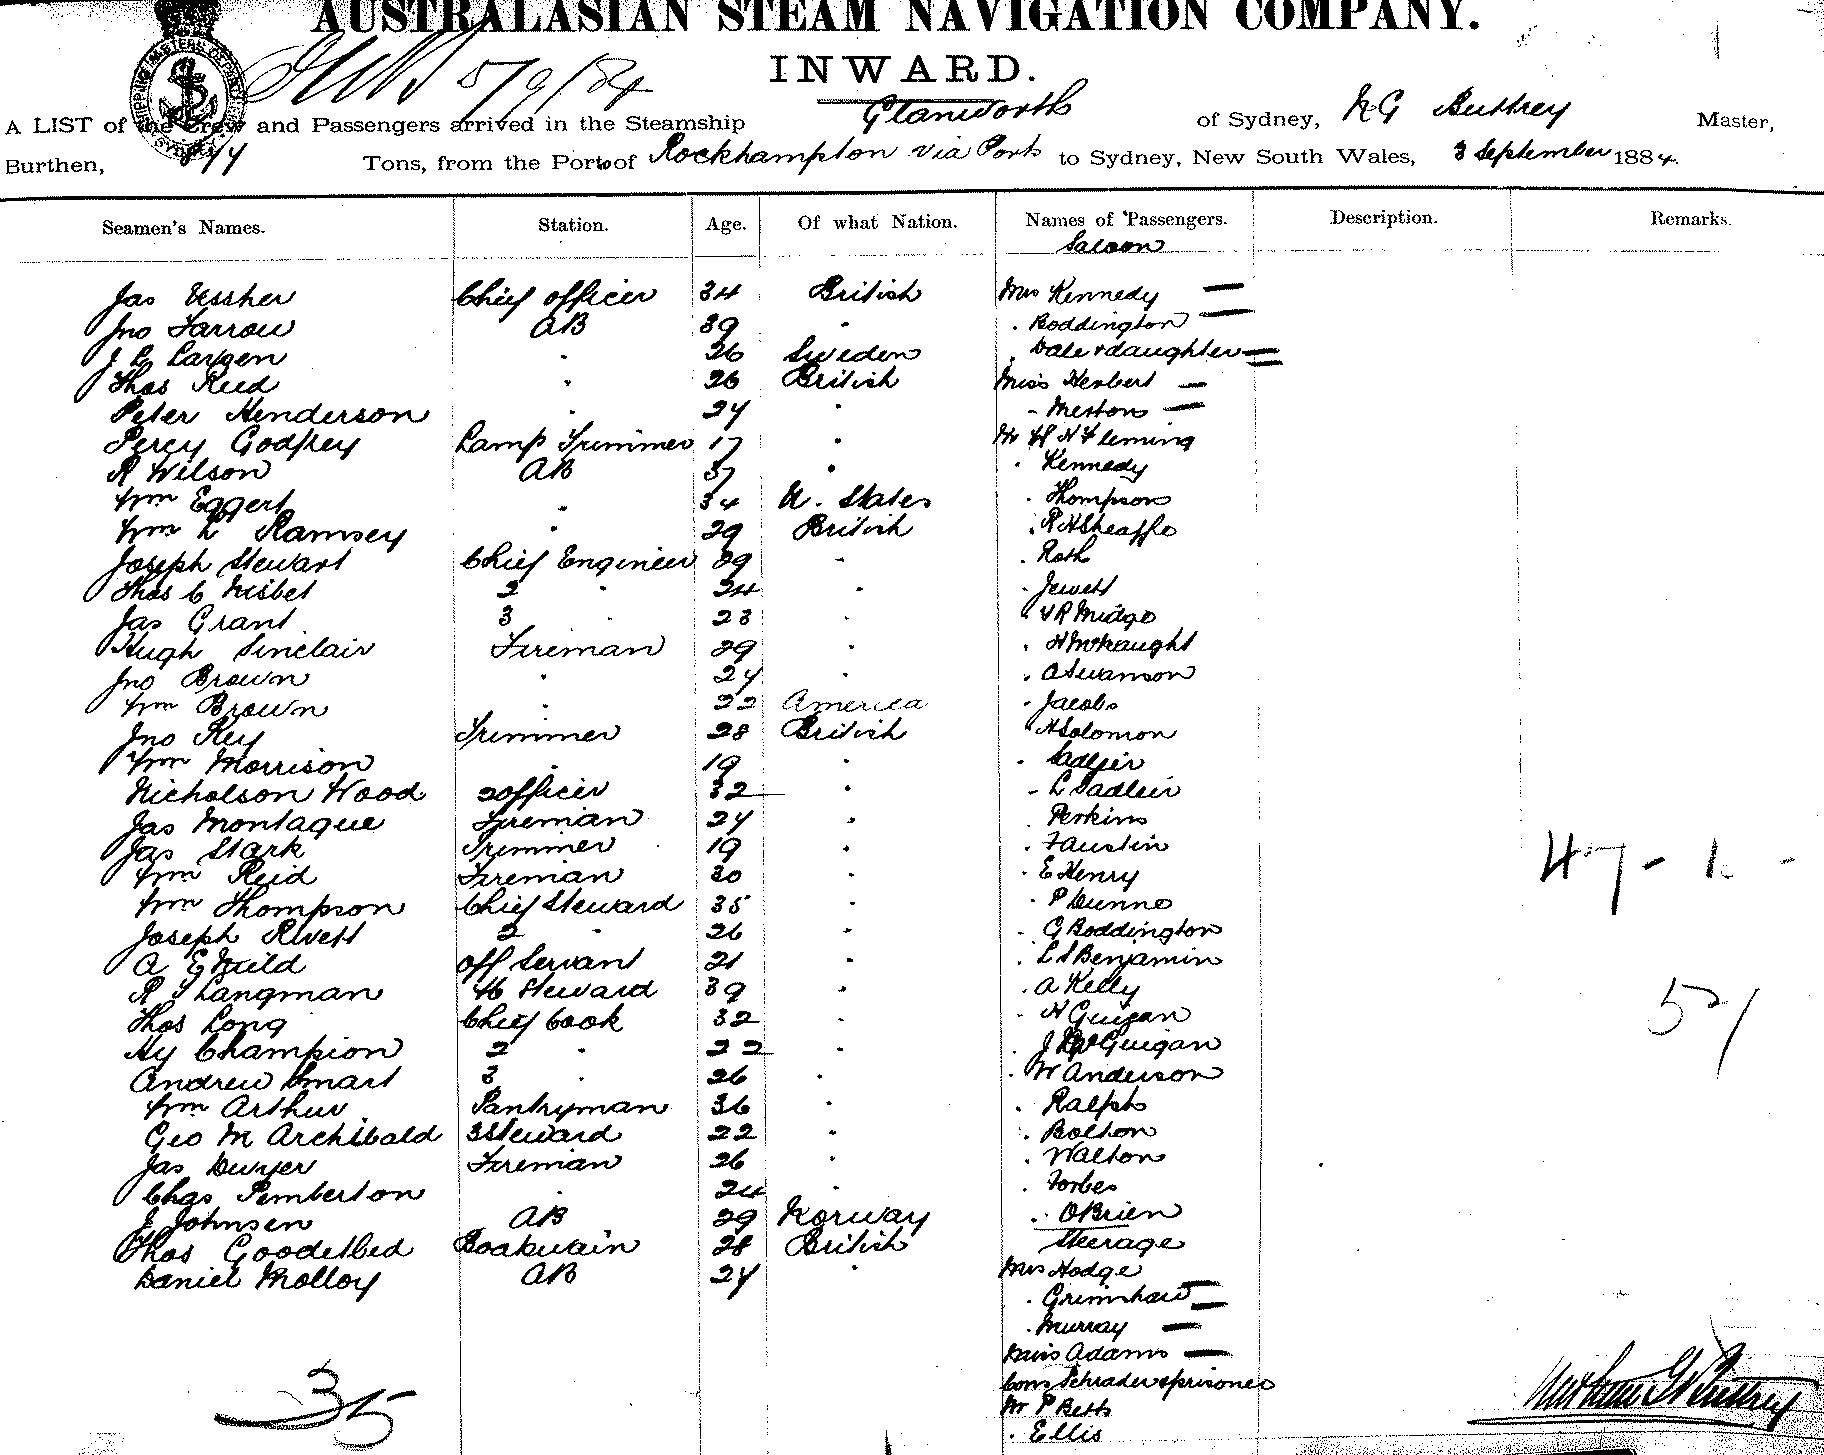 AUSTRALASIAN STEAM NAVIGATION COMPANY.
5/9/84
INWARD.
A LIST of the Crew and Passengers arrived in the Steamship Glanworth of Sydney, N G Buttrey Master,
Burthen, Tons, from the Port of Rockhampton via Ports to Sydney, New South Wales, 3 September 1884.
Seamen's Names. Station. Age. Of what Nation. Names of Passengers. Description. Remarks.
Saloon
Jas Ussher Chief officer 34 British Mrs Kennedy —
Jno Farrow AB 39 " . Boddington —
J L Largen " 26 Sweden . Dale & daughter =
Thos Reed " 26 British Miss Herbert —
Peter Henderson " 24 " - Meston —
Percy Godfrey Lamp Trimmer 17 " Mr H H Fleming
R Wilson AB 37 " . Kennedy
Wm Eggert " 34 U. States . Thompson
Wm L Ramsey " 29 British . R H Sheaffe
Joseph Stewart Chief Engineer 39 " . Roth
Thos C Nisbet 2 " 24 " . Jewett
Jas Grant 3 " 23 " " Midge
Hugh Sinclair Fireman 29 " . H McNaught
Jno Brown " 24 " . A Swanson
Wm Brown " 22 America . Jacobs
Jno Key Trimmer 28 British " H Solomon
Wm Morrison " 19 " . Sadleir
Nicholson Wood 2 officer 32 " - L Sadleir
Jas Montague Fireman 24 " . Perkins
Jas Stark Trimmer 19 " . Faustin
Wm Reid Fireman 30 " . E Henry
Wm Thompson Chief Steward 35 " . P Dunne
Joseph Rivett 2 " 26 " . G Boddington
A E Neild off Servant 21 " . L S Benjamin
R T Langman Steward 39 " . A Kelly
Thos Long Chief Cook 32 " . H Guigan
Hy Champion 2 " 22 " . J McGuigan
Andrew Smart 3 " 26 " . W Anderson
Wm Arthur Pantryman 36 " . Ralph
Geo M Archibald 3 Steward 22 " . Bolton
Jas Dwyer Fireman 26 " . Walton
Chas Pemberton " 24 " . Forbes
J Johnsen AB 29 Norway . OBrien
Thos Goodelbed Boatswain 28 British Steerage
Daniel Molloy AB 24 " Mrs Hodge
. Grimshaw =
. Murray —
Miss Adams —
Cons Schrader & prisoner
Mr P Betts
. Ellis
47 - 1 -
52/
35